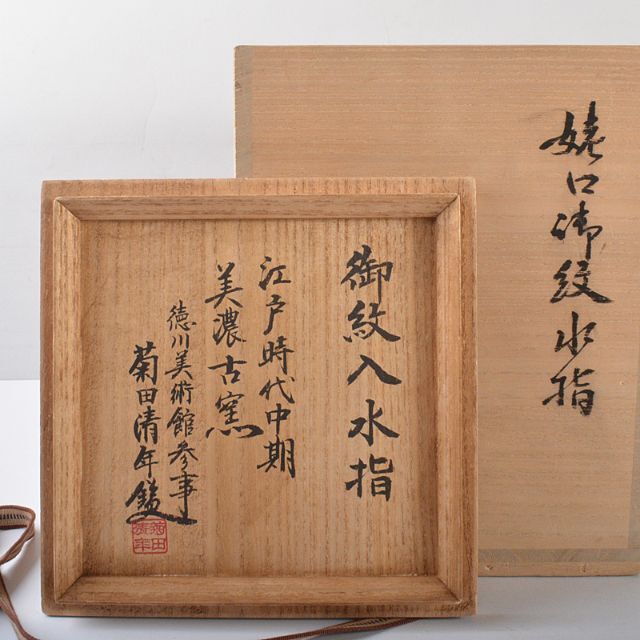 御紋入水指
江戸時代中期
美濃古窯
徳川美術館参事
菊田清年鑑
菊田
清年
姥口御紋水指